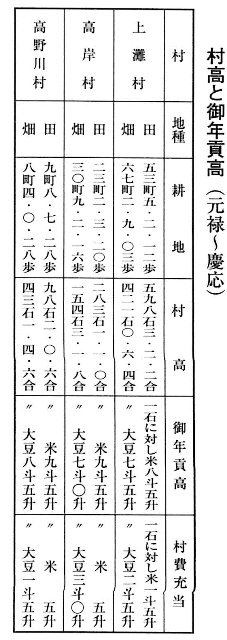 村高と御年貢高（元禄～慶応）
村 地種 耕地 村高 御年貢高 村費充当
上灘村 田 五三町五・二・一二歩 五九八石三・二・二合 一石に対し米八斗五升 一石に対し米一斗五升
畑 六七町二・九・〇三歩 四二一石〇・六・四合 〃 大豆七斗五升 〃 大豆二斗五升
高岸村 田 二三町二・三・二〇歩 二八三石一・一・〇合 〃 米九斗五升 〃 米 五升
畑 三〇町九・二・一六歩 一五四石三・一・八合 〃 大豆七斗〇升 〃 大豆三斗〇升
高野川村 田 九町八・七・二八歩 九八石二・〇・六合 〃 米九斗五升 〃 米 五升
畑 八町四・〇・二八歩 四三石一・四・六合 〃 大豆八斗五升 〃 大豆一斗五升